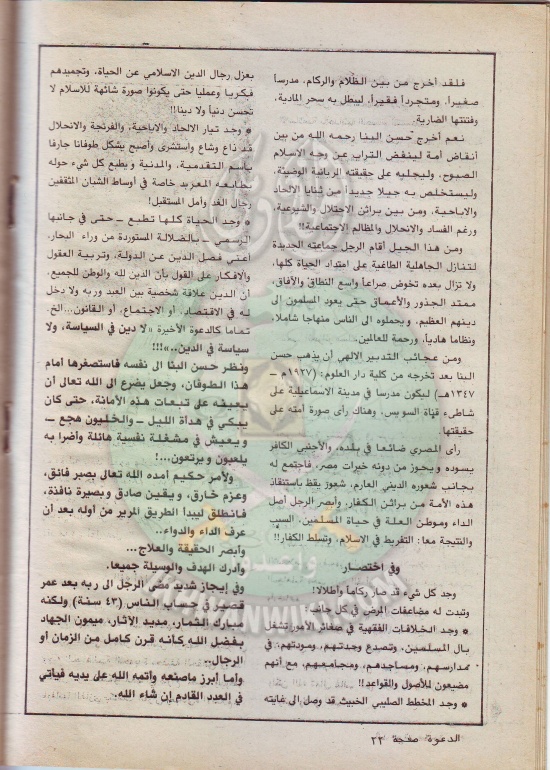 فلقد أخرج من بين الظلام والركام، مدرساً
صغيراً، ومتجرداً فقيراً، ليبطل به سحر المادية،
وفتنتها الضارية.
نعم أخرج حسن البنا رحمه الله من بين
أنقاض أمة لينفض التراب عن وجه الاسلام
الصبوح، وليجليه على حقيقته الربانية الوضيئة،
وليستخلص به جيلا جديداً من ثنايا الالحاد
والاباحية، ومن بين براثن الاحتلال والشيوعية،
ورغم الفساد والانحلال والمظالم الاجتماعية!!
ومن هذا الجيل أقام الرجل جماعته الجديدة
لتنازل الجاهلية الطاغية على امتداد الحياة كلها،
ولا تزال بعده تخوض صراعاً واسع النطاق والآفاق،
ممتد الجذور والأعماق حتى يعود المسلمون إلى
دينهم العظيم، ويحملوه الى الناس منهاجا شاملا،
ونظاما هادياً، ورحمة للعالمين.
ومن عجائب التدبير الالهي أن يذهب حسن
البنا بعد تخرجه من كلية دار العلوم: (١٩٢٧م ــ
١٣٤٧هـ) ليكون مدرسا في مدينة الاسماعيلية على
شاطىء قناة السويس، وهناك رأى صورة أمته على
حقيقتها.
رأى المصري ضائعا في بلده، والأجنبي الكافر
يسوده ويحوز من دونه خيرات مصر، فاجتمع له
بجانب شعوره الديني العارم، شعور يقظ باستنقاذ
هذه الأمة من براثن الكفار، وأبصر الرجل أصل
الداء وموطن العلة في حياة المسلمين، السبب
والنتيجة معا: التفريط في الاسلام، وتسلط الكفار!!
وفي اختصار
وجد كل شيء قد صار ركاماً وأطلالا!
وتبدت له مضاعفات المرض في كل جانب:
* وجد الخلافات الفقهية في صغائر الأمور تشغل
بال المسلمين، وتصدع وحدتهم، ومودتهم، في
مدارسهم، ومساجدهم، ومجامعهم، مع أنهم
مضيعون للأصول والقواعد!!
* وجد المخطط الصليبي الخبيث قد وصل الى غايته
بعزل رجال الدين الاسلامي عن الحياة، وتجميدهم
فكريا وعمليا حتى يكونوا صورة شائهة للاسلام لا
تحسن دنياً ولا دينا!!
* وجد تيار الالحاد والاباحية، والفرنجة والانحلال
قد ذاع وشاع واستشرى وأصبح يشكل طوفانا جارفا
باسم التقدمية، والمدنية ويطبع كل شيء حوله
بطابعه المعربد خاصة في أوساط الشبان المثقفين
رجال الغد وأمل المستقبل!
* وجد الحياة كلها تطبع ــ حتى في جانبها
الرسمي ــ بالضلالة المستوردة من وراء البحار،
أعنى فصل الدين عن الدولة، وتربية العقول
والأفكار على القول بأن الدين لله والوطن للجميع،
أن الدين علاقة شخصية بين العبد وربه ولا دخل
له في الاقتصاد، أو الاجتماع، أو القانون... الخ.
تماما كالدعوة الأخيرة «لا دين في السياسة، ولا
سياسة في الدين..»!!!
ونظر حسن البنا الى نفسه فاستصغرها أمام
هذا الطوفان، وجعل يضرع الى الله تعالى أن
يعينه على تبعات هذه الأمانة، حتى كان
يبكي في هدأة الليل ــ والخليون هجع ــ
ويعيش في مشغلة نفسية هائلة وأضرا به
يلعبون ويرتعون...!
ولأمر حكيم أمده الله تعالى بصبر فائق،
وعزم خارق، ويقين صادق وبصيرة نافذة،
فانطلق ليبدأ الطريق المرير من أوله بعد أن
عرف الداء والدواء..
وأبصر الحقيقة والعلاج...
وأدرك الهدف والوسيلة جميعا.
وفي إيجاز شديد مضى الرجل الى ربه بعد عمر
قصير في حساب الناس (٤٣ سنة) ولكنه
مبارك الثمار، مديد الآثار، ميمون الجهاد
بفضل الله كأنه قرن كامل من الزمان أو
الرجال..
وأما أبرز ماصنعه وأتمه الله على يديه فيأتي
في العدد القادم إن شاء الله.
الدعوة صفحة ٢٣